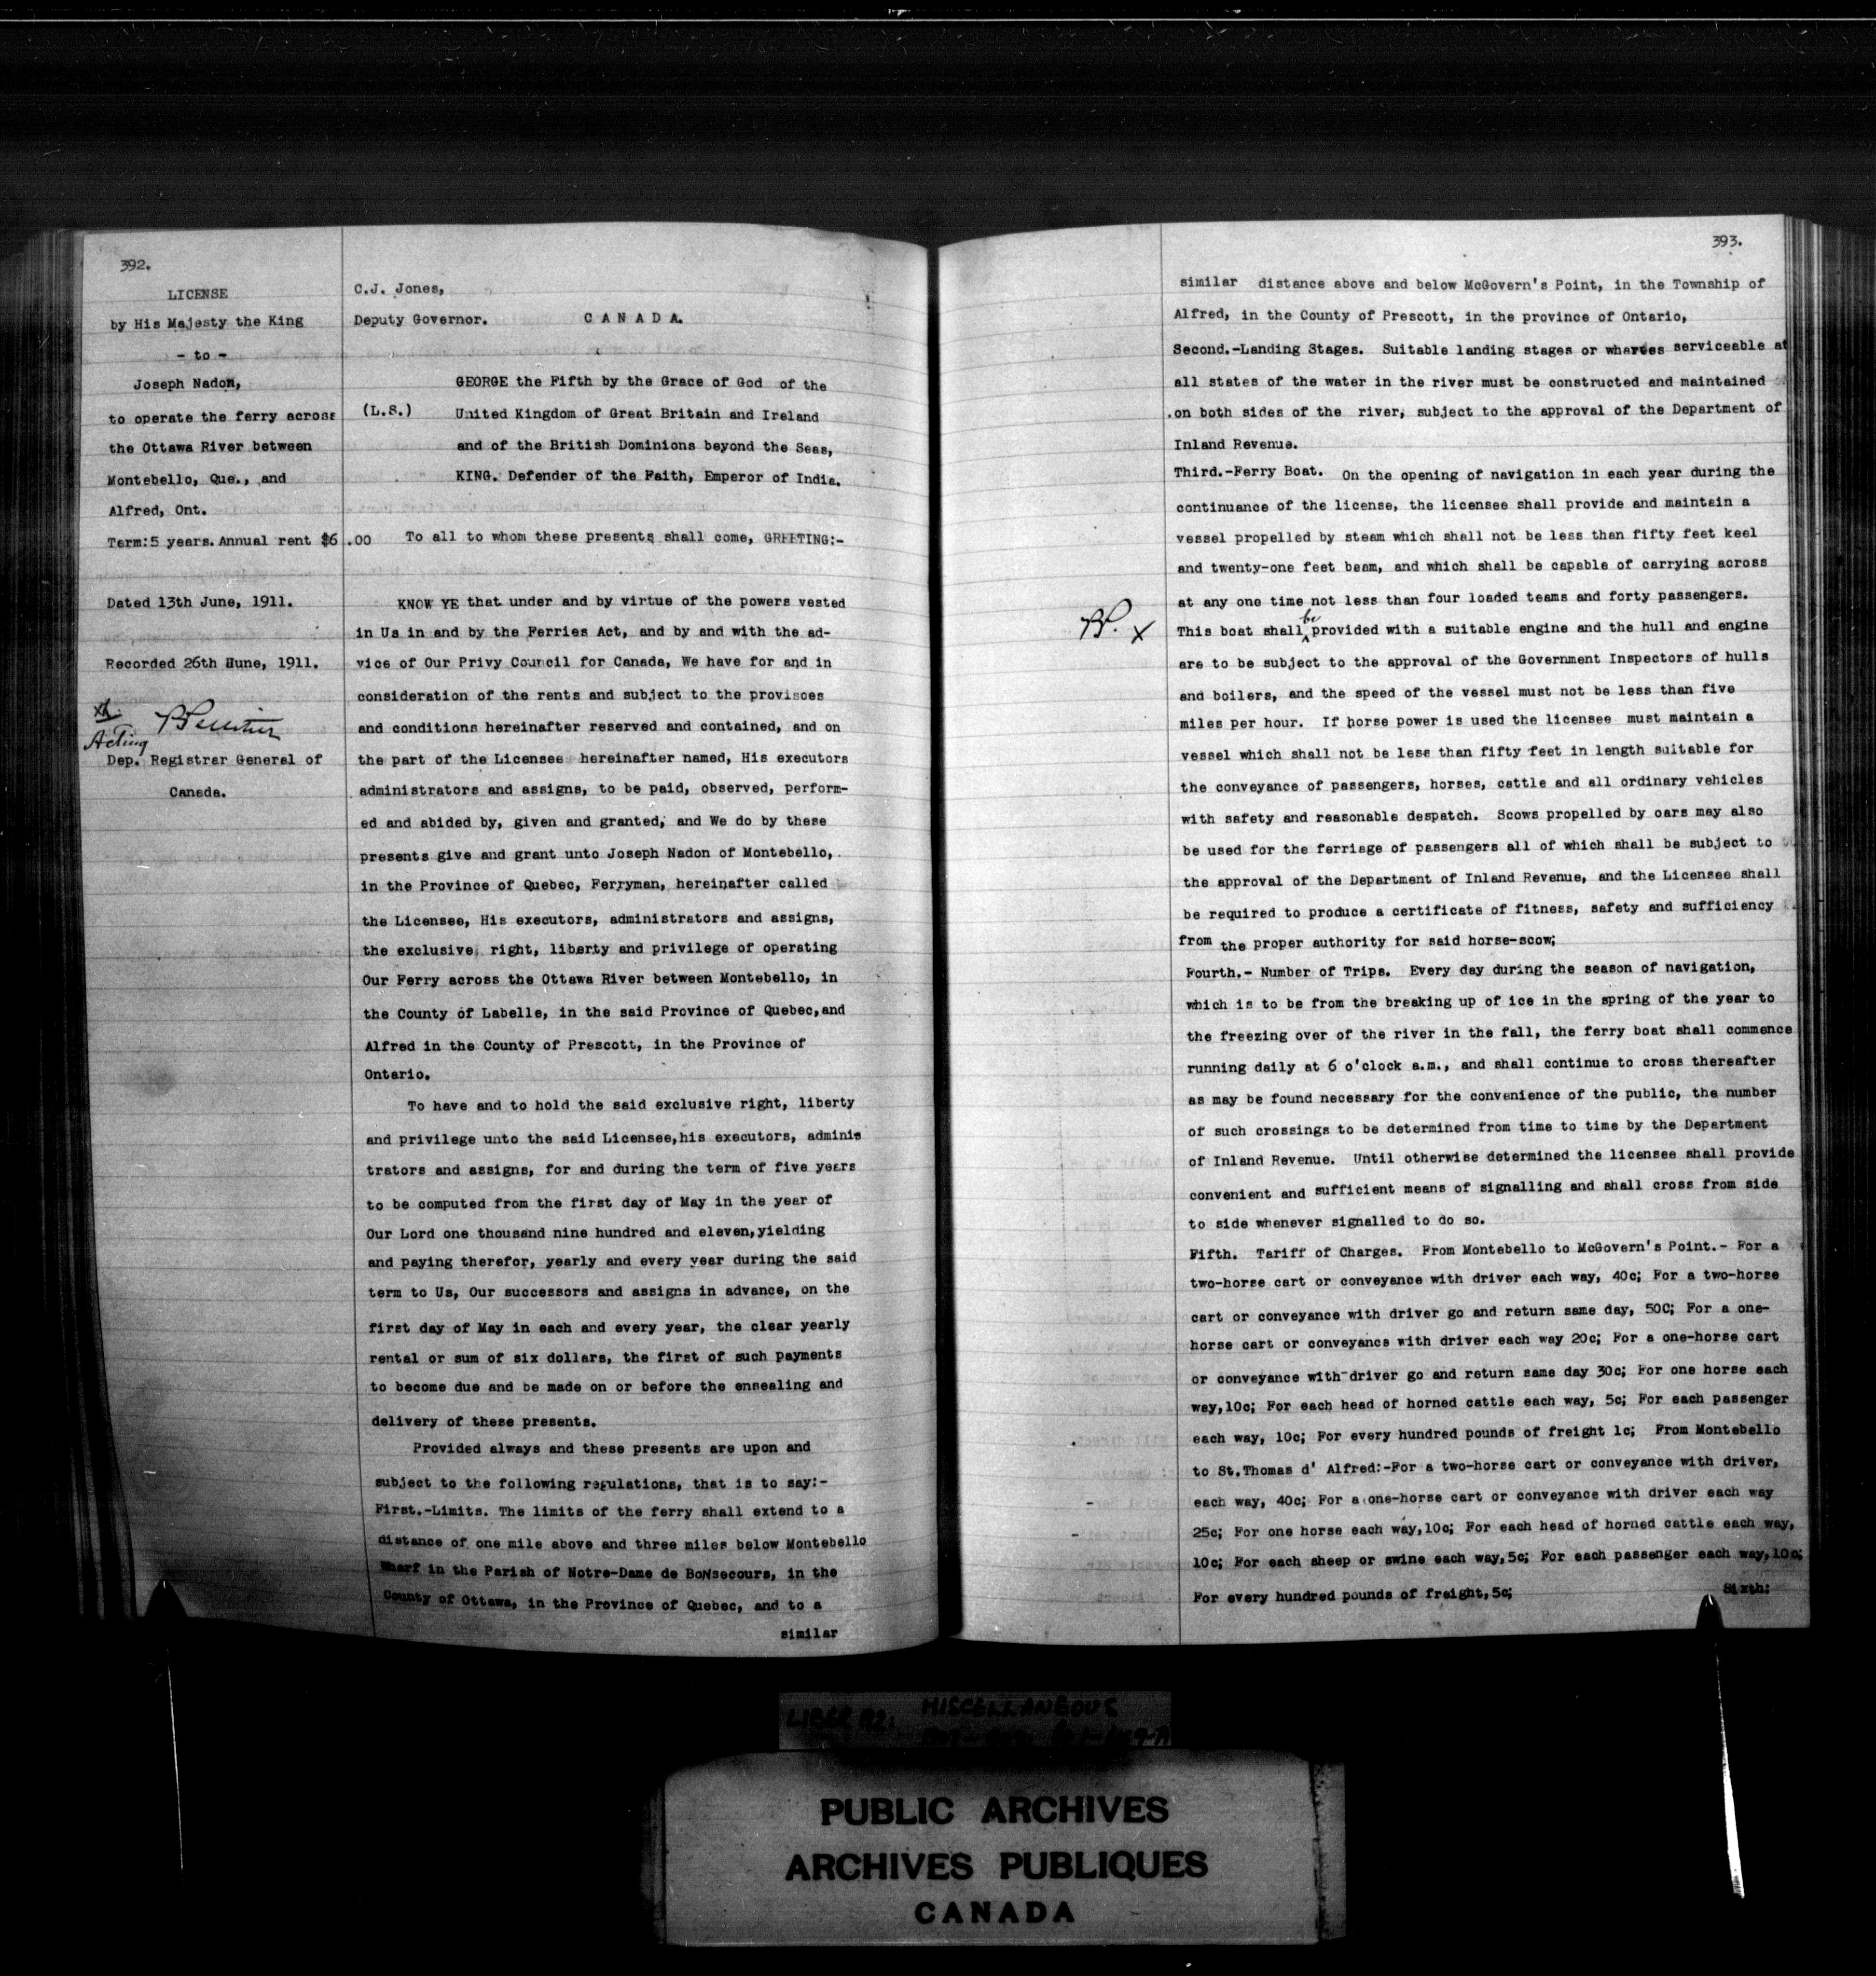 392.
LICENSE
by His Majesty the King
- to -
Joseph Nadon,
to operate the ferry across
the Ottawa River between
Montebello, Que., and
Alfred, Ont.
Term:5 years. Annual rent $6.00
Dated 13th June, 1911.
Recorded 26th Hune, 1911.
Acting
Dep. Registrar General of
Canada.
C.J. Jones,
Deputy Governor. C A N A D A.
GEORGE the Fifth by the Grace of God of the
(L.S.) United Kingdom of Great Britain and Ireland
and of the British Dominions beyond the Seas,
KING. Defender of the Faith, Emperor of India.
To all to whom these presents shall come, GREETING:-
KNOW YE that under and by virtue of the powers vested
in Us in and by the Ferries Act, and by and with the ad-
vice of Our Privy Council for Canada, We have for and in
consideration of the rents and subject to the provisoes
and conditions hereinafter reserved and contained, and on
the part of the Licensee hereinafter named, His executors
administrators and assigns, to be paid, observed, perform-
ed and abided by, given and granted, and We do by these
presents give and grant unto Joseph Nadon of Montebello,
in the Province of Quebec, Ferryman, hereinafter called
the Licensee, His executors, administrators and assigns,
the exclusive right, liberty and privilege of operating
Our Ferry across the Ottawa River between Montebello, in
the County of Labelle, in the said Province of Quebec,and
Alfred in the County of Prescott, in the Province of
Ontario.
To have and to hold the said exclusive right, liberty
and privilege unto the said Licensee,his executors, adminis
trators and assigns, for and during the term of five years
to be computed from the first day of May in the year of
Our Lord one thousand nine hundred and eleven,yielding
and paying therefor, yearly and every year during the said
term to Us, Our successors and assigns in advance, on the
first day of May in each and every year, the clear yearly
rental or sum of six dollars, the first of such payments
to become due and be made on or before the ensealing and
delivery of these presents.
Provided always and these presents are upon and
subject to the following regulations, that is to say:-
First.-Limits. The limits of the ferry shall extend to a
distance of one mile above and three miles below Montebello
Wharf in the Parish of Notre-Dame de BoNsecours, in the
County of Ottawa, in the Province of Quebec, and to a
similar
393.
similar distance above and below McGovern's Point, in the Township of
Alfred, in the County of Prescott, in the province of Ontario,
Second.-Landing Stages. Suitable landing stages or wharves serviceable at
all states of the water in the river must be constructed and maintained
on both sides of the river, subject to the approval of the Department of
Inland Revenue.
Third.-Ferry Boat. On the opening of navigation in each year during the
continuance of the license, the licensee shall provide and maintain a
vessel propelled by steam which shall not be less than fifty feet keel
and twenty-one feet beam, and which shall be capable of carrying across
at any one time not less than four loaded teams and forty passengers.
BP. x This boat shall be provided with a suitable engine and the hull and engine
are to be subject to the approval of the Government Inspectors of hulls
and boilers, and the speed of the vessel must not be less than five
miles per hour. If horse power is used the licensee must maintain a
vessel which shall not be less than fifty feet in length suitable for
the conveyance of passengers, horses, cattle and all ordinary vehicles
with safety and reasonable despatch. Scows propelled by oars may also
be used for the ferriage of passengers all of which shall be subject to
the approval of the Department of Inland Revenue, and the Licensee shall
be required to produce a certificate of fitness, safety and sufficiency
from the proper authority for said horse-scow;
Fourth.- Number of Trips. Every day during the season of navigation,
which is to be from the breaking up of ice in the spring of the year to
the freezing over of the river in the fall, the ferry boat shall commence
running daily at 6 o'clock a.m., and shall continue to cross thereafter
as may be found necessary for the convenience of the public, the number
of such crossings to be determined from time to time by the Department
of Inland Revenue. Until otherwise determined the licensee shall provide
convenient and sufficient means of signalling and shall cross from side
to side whenever signalled to do so.
Fifth. Tariff of Charges. From Montebello to McGovern's Point.- For a
two-horse cart or conveyance with driver each way, 40c; For a two-horse
cart or conveyance with driver go and return same day, 50C; For a one-
horse cart or conveyance with driver each way 20c; For a one-horse cart
or conveyance with driver go and return same day 30c; For one horse each
way,10c; For each head of horned cattle each way, 5c; For each passenger
each way, 10c; For every hundred pounds of freight 1c; From Montebello
to St.Thomas d' Alfred:-For a two-horse cart or conveyance with driver,
each way, 40c; For a one-horse cart or conveyance with driver each way
25c; For one horse each way,10c; For each head of horned cattle each way,
10c; For each sheep or swine each way,5c; For each passenger each way,10c;
For every hundred pounds of freight,5c; Sixth:
LIBER MISCELLANEOUS
PUBLIC ARCHIVES
ARCHIVES PUBLIQUES
CANADA